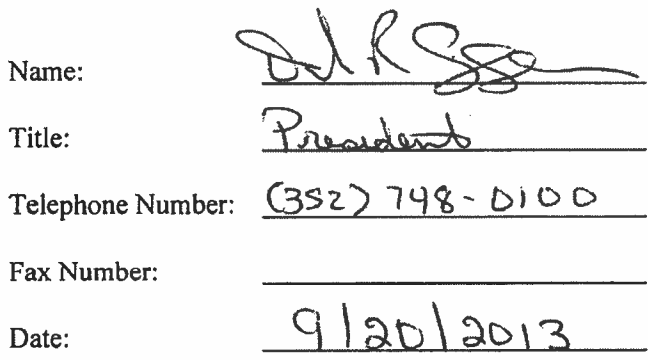 Name:
Title: President
Telephone Number: (352) 748-0100
Fax Number:
Date: 9/20/2013